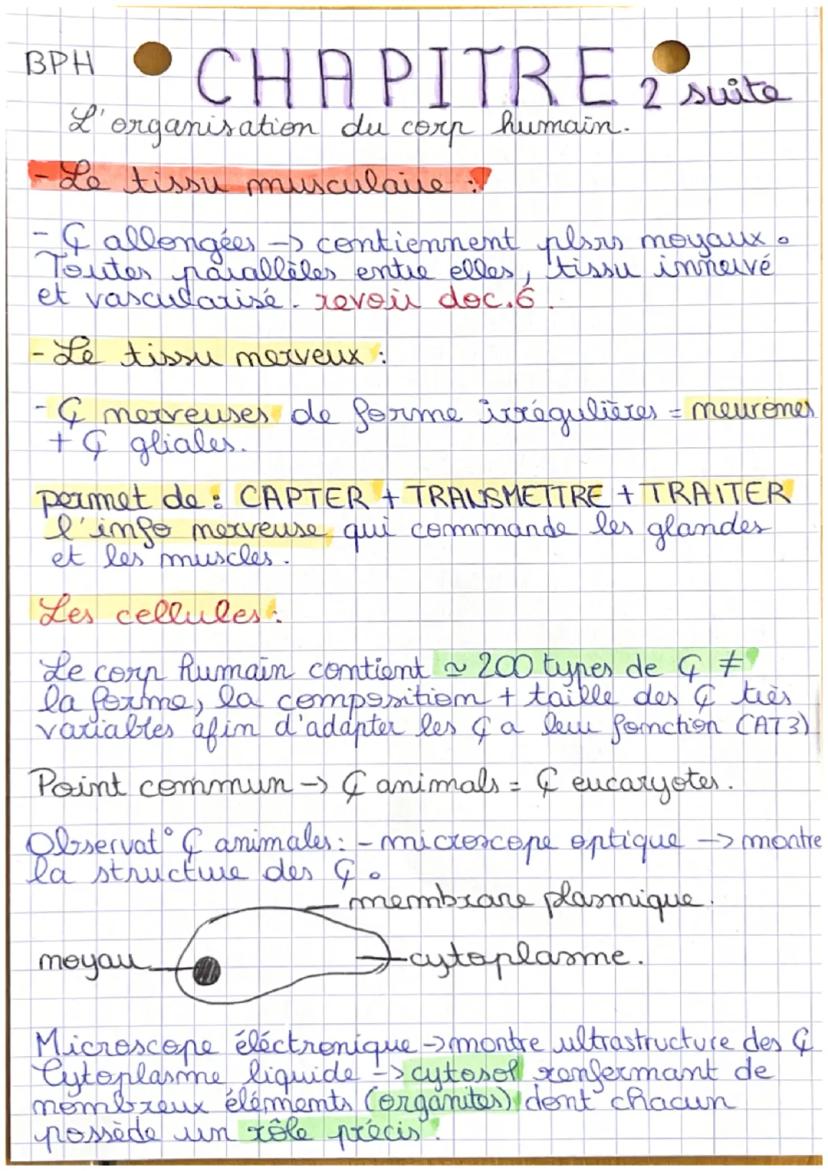 BPH
CHAPITRE 2 suite
L'organisation du corp humain.
- Le tissu musculaire :
- Ç allongées -> contiennent plsrs noyaux.
Toutes parallèles entre elles, tissu innervé
et vascularisé. revoir doc.6.
- Le tissu nerveux :
- Ç nerveuses de forme irrégulières = neurones
+ Ç gliales.
permet de : CAPTER + TRANSMETTRE + TRAITER
l'info nerveuse qui commande les glandes
et les muscles.
Les cellules :
Le corp humain contient ≃ 200 types de Ç ≠
la forme, la composition + taille des Ç très
variables afin d'adapter les Ç a leur fonction (AT3)
Point commun -> Ç animals = Ç eucaryotes.
Observat° Ç animales : - microscope optique -> montre
la structure des Ç.
membrane plasmique.
noyau
cytoplasme.
Microscope éléctronique -> montre ultrastructure des Ç
Cytoplasme liquide -> cytosol renfermant de
nombreux éléments (organites) dont chacun
possède un rôle précis.